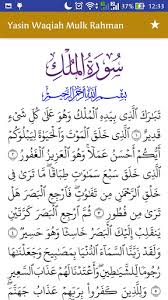 12:33
Yasin Waqiah Mulk Rahman
سُورَةُ المُلْكِ
بِسْمِ اللَّهِ الرَّحْمَٰنِ الرَّحِيمِ
تَبَٰرَكَ ٱلَّذِى بِيَدِهِ ٱلْمُلْكُ وَهُوَ عَلَىٰ كُلِّ شَىْءٍ
قَدِيرٌ ۝١ ٱلَّذِى خَلَقَ ٱلْمَوْتَ وَٱلْحَيَوٰةَ لِيَبْلُوَكُمْ
أَيُّكُمْ أَحْسَنُ عَمَلًا وَهُوَ ٱلْعَزِيزُ ٱلْغَفُورُ ۝٢
ٱلَّذِى خَلَقَ سَبْعَ سَمَٰوَٰتٍ طِبَاقًا مَّا تَرَىٰ
فِى خَلْقِ ٱلرَّحْمَٰنِ مِن تَفَٰوُتٍ فَٱرْجِعِ ٱلْبَصَرَ هَلْ
تَرَىٰ مِن فُطُورٍ ۝٣ ثُمَّ ٱرْجِعِ ٱلْبَصَرَ كَرَّتَيْنِ
يَنقَلِبْ إِلَيْكَ ٱلْبَصَرُ خَاسِئًا وَهُوَ حَسِيرٌ ۝٤
وَلَقَدْ زَيَّنَّا ٱلسَّمَآءَ ٱلدُّنْيَا بِمَصَٰبِيحَ وَجَعَلْنَٰهَا
رُجُومًا لِّلشَّيَٰطِينِ وَأَعْتَدْنَا لَهُمْ عَذَابَ ٱلسَّعِيرِ